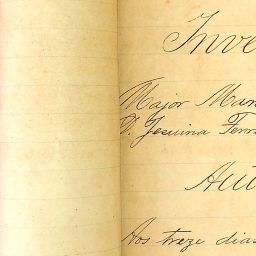 Inve
Major Man
D. Jesuina Ferr
Aut
Aos treze dias